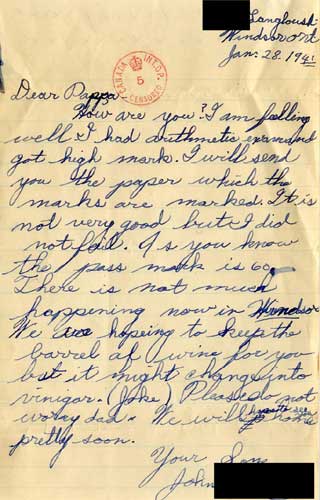 Langlois
Windsor Ont
Jan. 28. 1941
CANADA INT.OP.
5
CENSORED
Dear Pappa
How are you? I am feeling
well. I had arithmetic exam and
got high mark. I will send
you the paper which the
marks are marked. It is
not very good but I did
not fail. As you know
the pass mark is 60.
There is not much
happening now in Windsor
We are hopeing to keep the
barrel of wine for you
but it might change into
vinigar. (Joke) Please do not
worry dad. We will
pretty soon.
Your Son
John